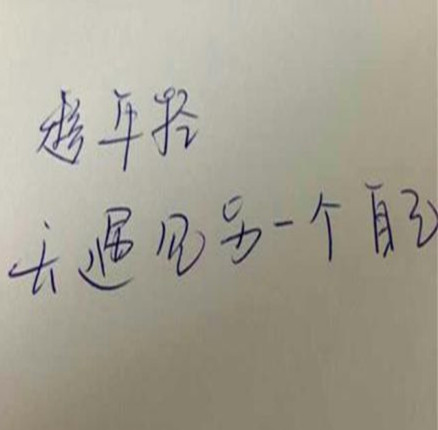 趁年轻
去遇见另一个自己